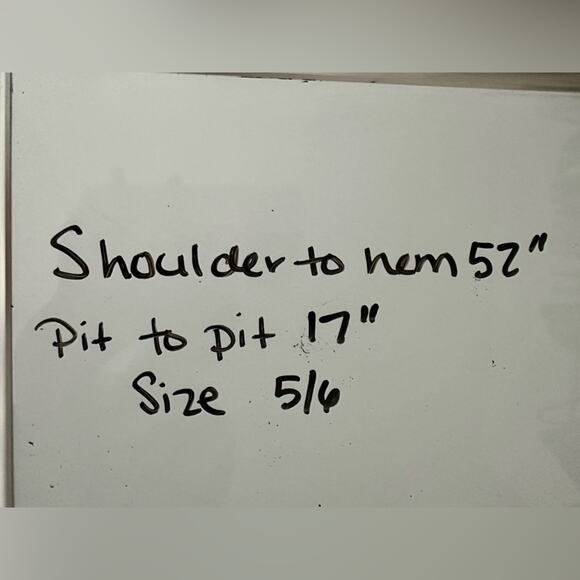 Shoulder to hem 52"
Pit to pit 17"
Size 5/6